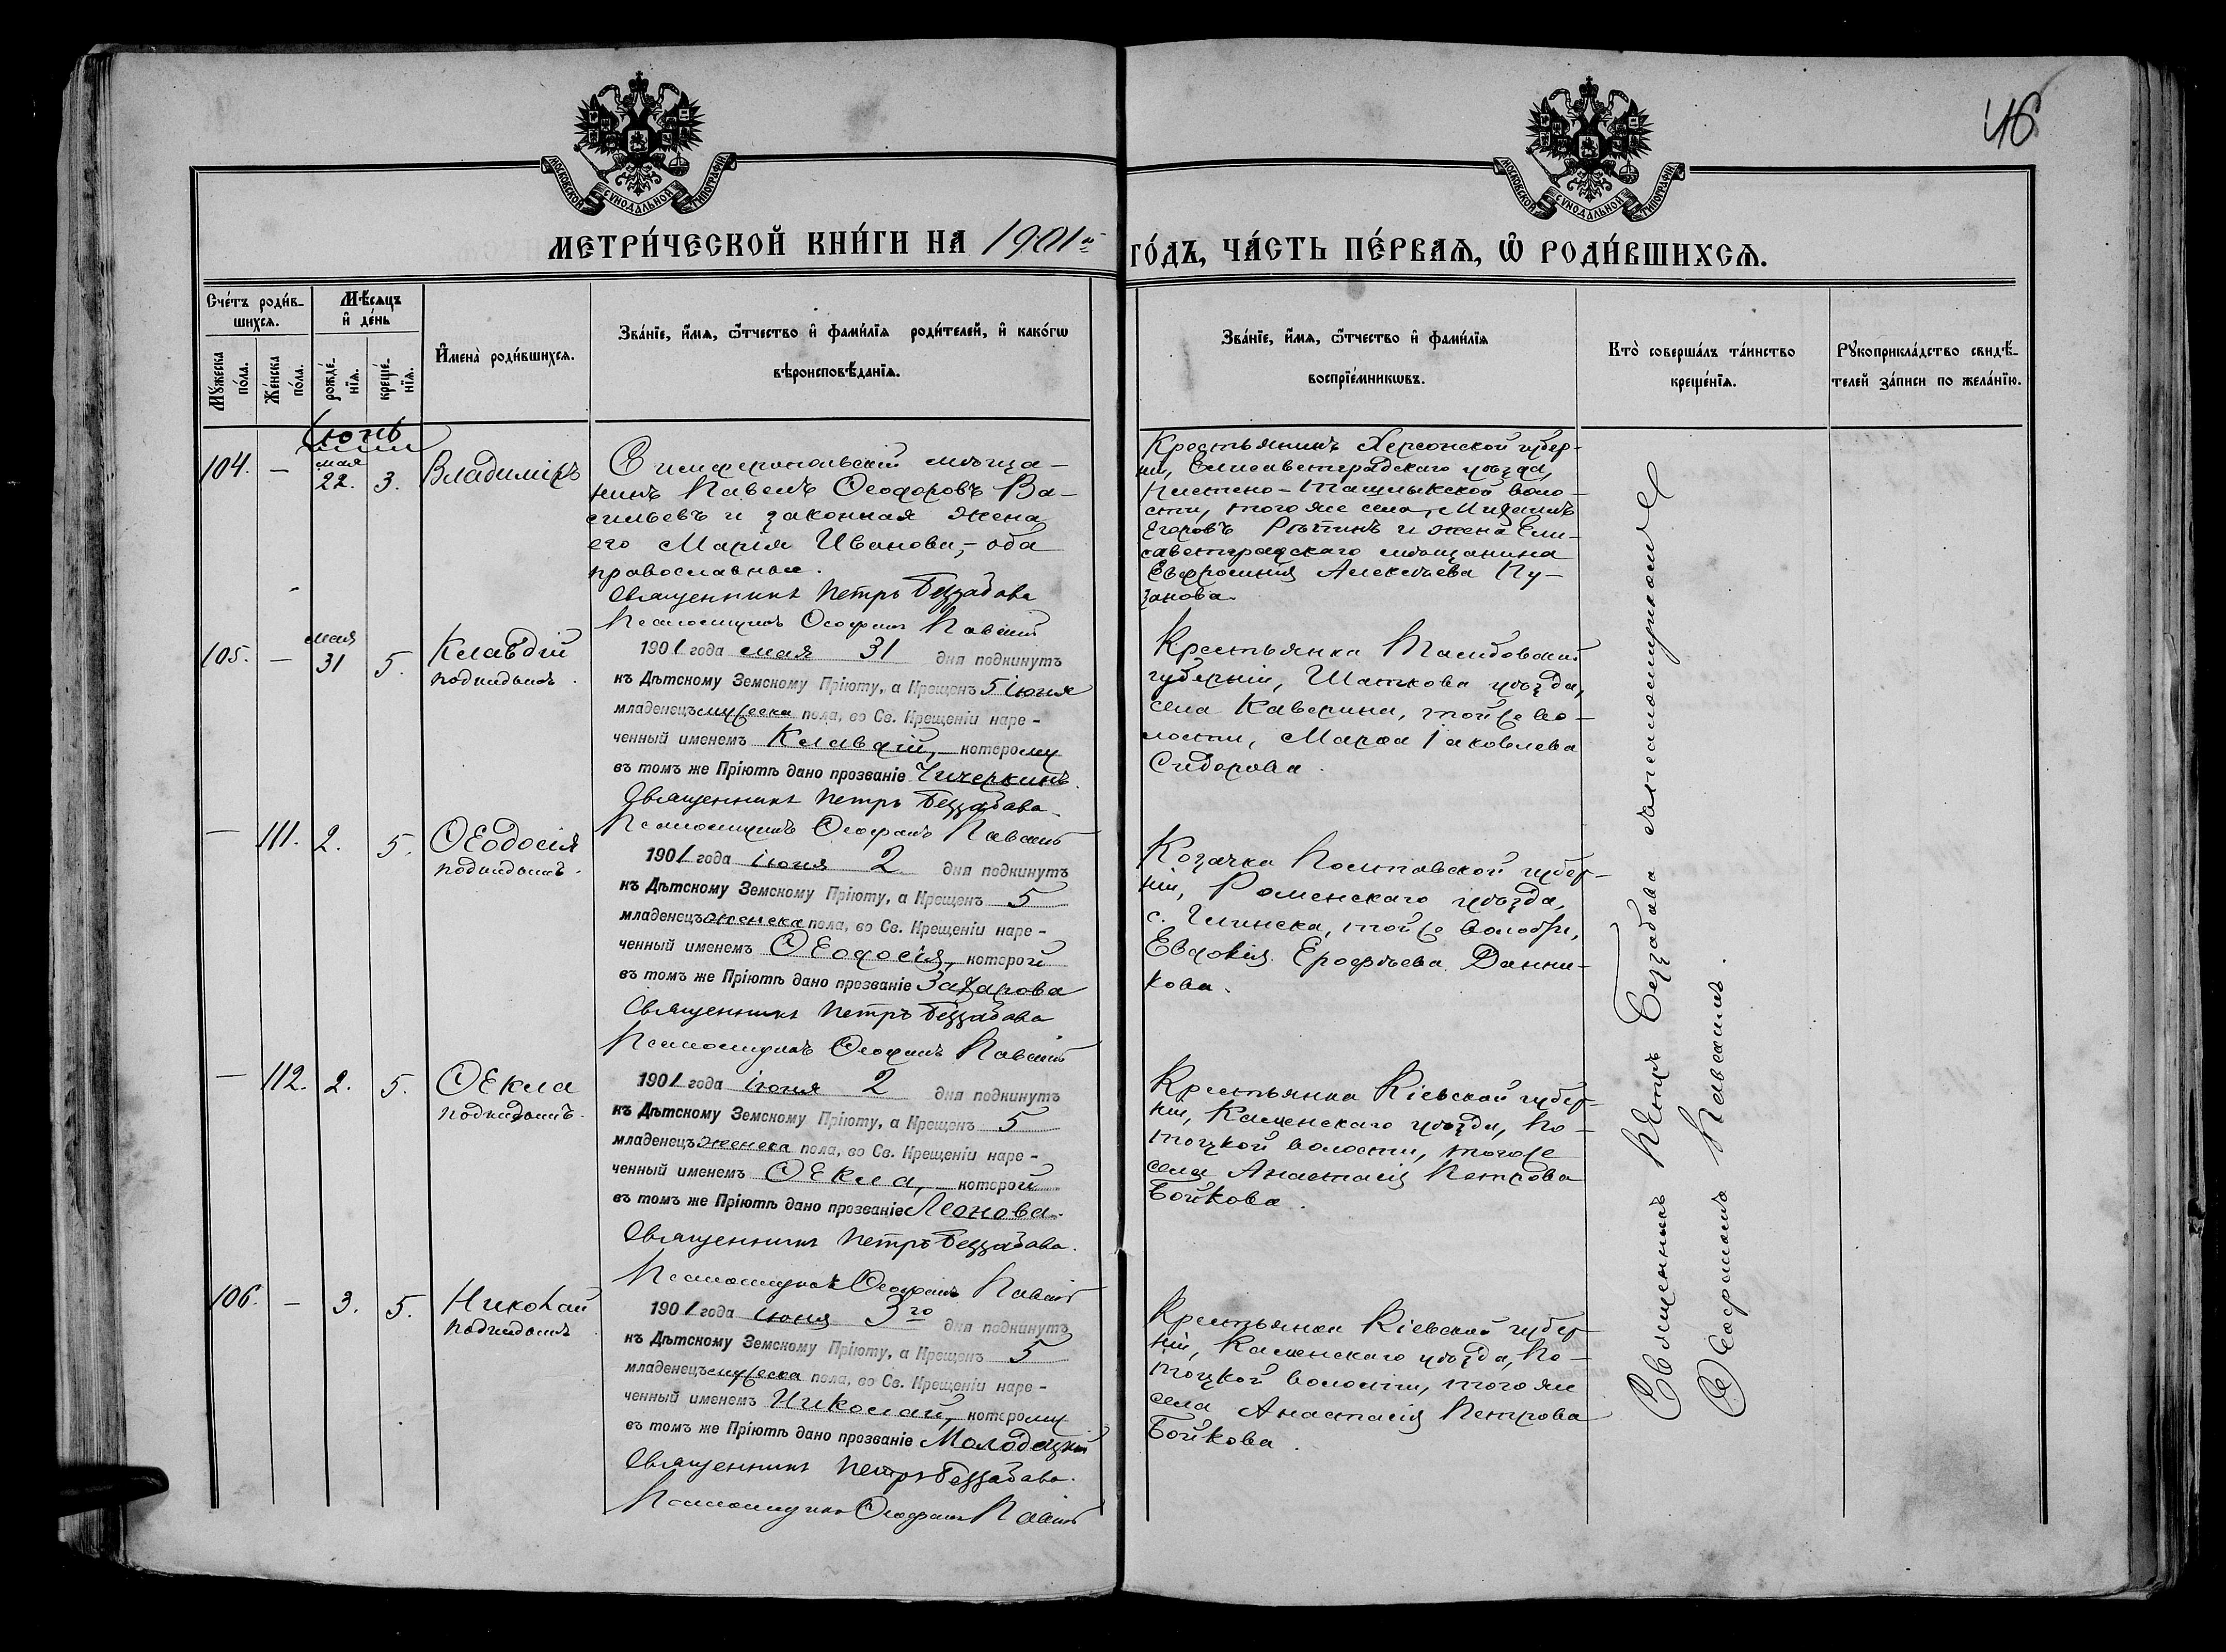 46
МОСКОВСКОЙ СѴНОДАЛЬНОЙ ТИПОГРАФІИ
МОСКОВСКОЙ СѴНОДАЛЬНОЙ ТИПОГРАФІИ
МЕТРИ́ЧЕСКОЙ КНИ́ГИ НА 1901й
ГО́ДЪ, ЧА́СТЬ ПЕ́РВАѦ, Ѽ РОДИ́ВШИХСѦ.
Сче́тъ роди́в-
шихсѧ.
Мꙋжеска по́ла.
Же́нска по́ла.
Мѣ́сѧцъ
и҆ де́нь
рожде́-
нїѧ.
креще́-
нїѧ.
И҆мена̀ роди́вшихсѧ.
Зва́нїе, и҆́мѧ, ѻ҆́тчество и҆ фами́лїѧ роди́телей, и҆ како́гѡ
вѣроисповѣ́данїѧ.
Зва́нїе, и҆́мѧ, ѻ҆́тчество и҆ фами́лїѧ
воспрїе́мникѡвъ.
Кто̀ соверша́лъ та́инство
креще́нїѧ.
Рꙋкоприкла́дство свидѣ́-
телей за́писи по жела́нїю.
Іюнь
104. — мая 22. 3. Владиміръ
Симферопольскій мѣща-
нинъ Павелъ Ѳеодоровъ Ва-
сильевъ и законная жена
его Марія Иванова, - оба
православные.
Священникъ Петръ Беззабава
Псаломщикъ Ѳеофанъ
Крестьянинъ Херсонской губер-
ніи, Елисаветградскаго уѣзда,
Плетено-Ташлыкской воло-
сти, того же села, Михаилъ
Егоровъ Рѣпинъ и жена Ели-
саветградскаго мѣщанина
Евфросинія Алексѣева Пу-
занова.
105. — мая 31 5. Клавдій
подкидышъ.
1901 года мая 31 дня подкинутъ
къ Дѣтскому Земскому Пріюту, а Крещенъ 5 іюня
младенецъ мужеска пола, во Св. Крещеніи наре-
ченный именемъ Клавдій, которому
въ томъ же Пріютѣ дано прозваніе Чичеркинъ.
Священникъ Петръ Беззабава.
Псаломщикъ Ѳеофанъ
Крестьянка Тамбовской
губерніи, Шацкова уѣзда,
села Каверина, той же во-
лости, Марѳа Іаковлева
Сидорова.
— 111. 2. 5. Ѳеодосія
подкидышъ.
1901 года іюня 2 дня подкинутъ
къ Дѣтскому Земскому Пріюту, а Крещенъ 5
младенецъ женска пола, во Св. Крещеніи наре-
ченный именемъ Ѳеодосія, которой
въ томъ же Пріютѣ дано прозваніе Захарова
Священникъ Петръ Беззабава
Псаломщикъ Ѳеофанъ
Козачка Полтавской губер-
ніи, Роменскаго уѣзда,
с. Глинска, той же волости,
Евдокія Ерофѣева Данни-
кова.
— 112. 2. 5. Ѳекла
подкидышъ.
1901 года іюня 2 дня подкинутъ
къ Дѣтскому Земскому Пріюту, а Крещенъ 5
младенецъ женска пола, во Св. Крещеніи наре-
ченный именемъ Ѳекла, которой
въ томъ же Пріютѣ дано прозваніе Леонова.
Священникъ Петръ Беззабава.
Псаломщикъ Ѳеофанъ
Крестьянка Кіевской губер-
ніи, Каневскаго уѣзда, По-
тоцкой волости, того же
села Анастасія Петрова
Бойкова.
106. — 3. 5. Николай
подкидышъ
1901 года іюня 3го дня подкинутъ
къ Дѣтскому Земскому Пріюту, а Крещенъ 5
младенецъ мужеска пола, во Св. Крещеніи наре-
ченный именемъ Николай, которому
въ томъ же Пріютѣ дано прозваніе Молодецкій
Священникъ Петръ Беззабава.
Псаломщикъ Ѳеофанъ
Крестьянка Кіевской губер-
ніи, Каневскаго уѣзда, По-
тоцкой волости, того же
села Анастасія Петрова
Бойкова.
Священникъ Петръ Беззабава съ псаломщикомъ